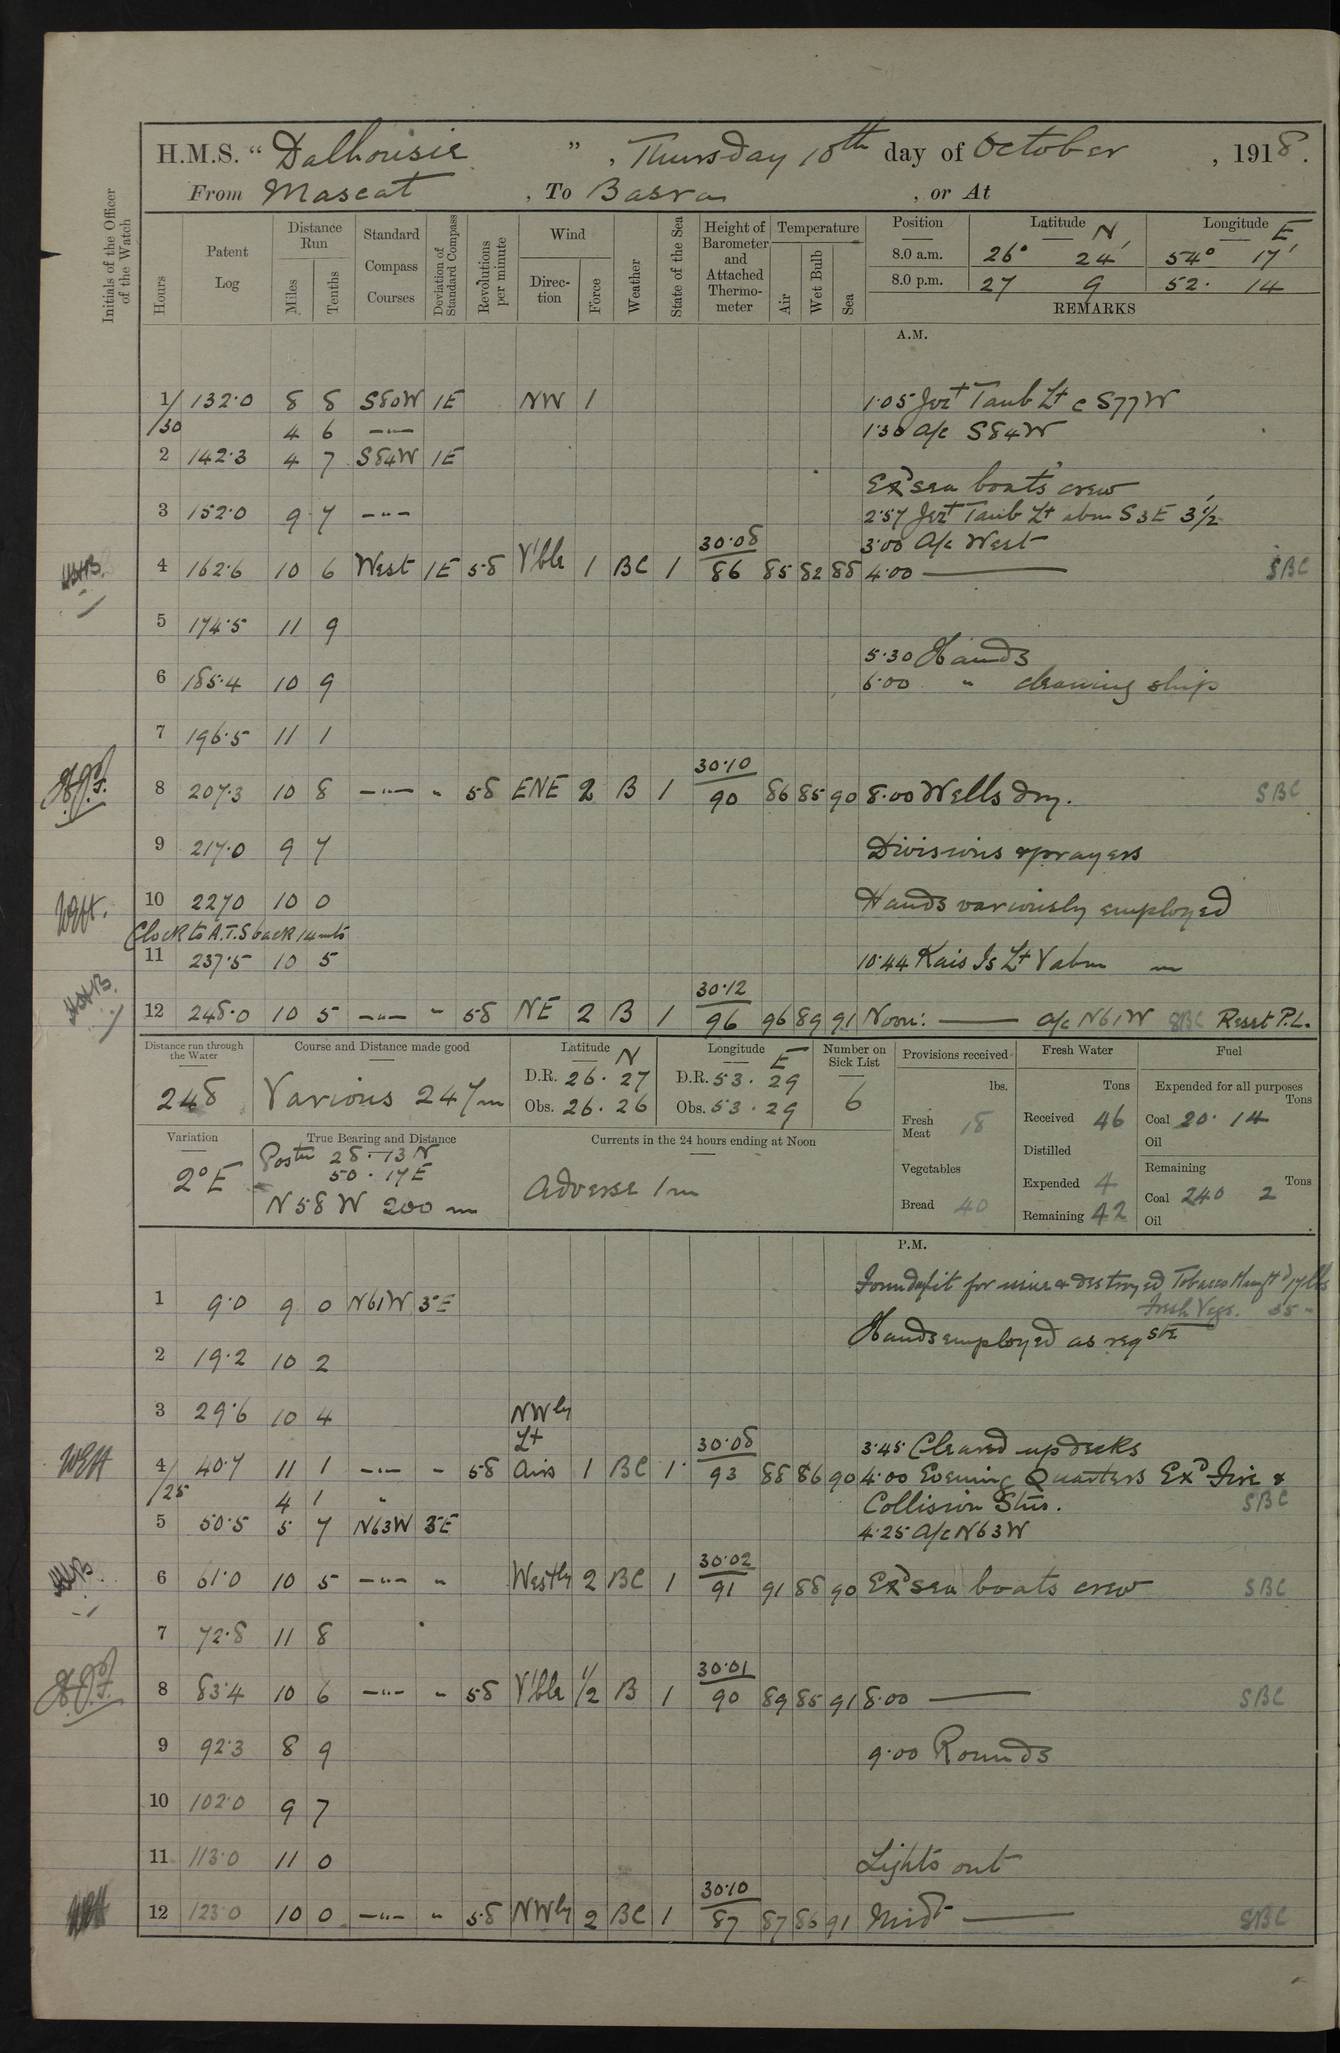 H.M.S. “ Dalhousie ” , Thursday 10th day of October , 1918.
From Mascat , To Basra , or At
Initials of the Officer of the Watch
Hours Patent Log Distance Run Miles Tenths Standard Compass Courses Deviation of Standard Compass Revolutions per minute Wind Direction Force Weather State of the Sea Height of Barometer and Attached Thermometer Temperature Air Wet Bulb Sea
Position Latitude N Longitude E
8.0 a.m. 26° 24' 54° 17'
8.0 p.m. 27 9 52. 14
REMARKS
A.M.
1 132.0 8 8 S80W 1E NW 1 1.05 Jezt Tanb Lt c S77W
/30 4 6 —"— 1.30 A/c S84W
2 142.3 4 7 S84W 1E
Exd sea boats crew
3 152.0 9 7 —"— 2.57 Jezt Tanb Lt abm S3E 3½'
3.00 A/c West
4 162.6 10 6 West 1E 58 V'ble 1 BC 1 30.08/86 85 82 88 4.00 —— SBC
5 174.5 11 9
5.30 Hands
6 185.4 10 9 6.00 " cleaning ship
7 196.5 11 1
8 207.3 10 8 —"— " 58 ENE 2 B 1 30.10/90 86 85 90 8.00 Wells dry. SBC
9 217.0 9 7 Divisions & prayers
WEH. 10 2270 10 0 Hands variously employed
Clock to A.T.S back 14 mts
11 237.5 10 5 10.44 Kais Is Lt V abm
12 248.0 10 5 —"— " 58 NE 2 B 1 30.12/96 96 89 91 Noon: —— A/c N61W SBC Reset P.L.
Distance run through the Water 248
Course and Distance made good Various 247m
Latitude N D.R. 26. 27 Obs. 26. 26
Longitude E D.R. 53. 29 Obs. 53. 29
Number on Sick List 6
Provisions received lbs. Fresh Meat 18 Vegetables Bread 40
Fresh Water Tons Received 46 Distilled Expended 4 Remaining 42
Fuel Expended for all purposes Tons Coal 20. 14 Oil Remaining Tons Coal 240 2 Oil
Variation 2°E
True Bearing and Distance Postn 28. 13 N
50. 17 E
N58W 200 m
Currents in the 24 hours ending at Noon Adverse 1m
P.M.
Found unfit for issue & destroyed Tobacco 17 lbs
Fresh Vegs. 35 "
1 9.0 9 0 N61W 3°E
Hands employed as reqste
2 19.2 10 2
3 29.6 10 4 NWly
Lt
3.45 Cleared up decks
WEH 4 40.7 11 1 —"— " 58 Airs 1 BC 1 30.08/93 88 86 90 4.00 Evening Quarters Exd Fire &
/25 4 1 " Collision Stns. SBC
5 50.5 5 7 N63W 3E 4.25 A/c N63W
6 61.0 10 5 —"— " Westly 2 BC 1 30.02/91 91 88 90 Exd sea boats crew SBC
7 72.8 11 8
8 83.4 10 6 —"— " 58 V'ble 1/2 B 1 30.01/90 89 85 91 8.00 —— SBC
9 92.3 8 9 9.00 Rounds
10 102.0 9 7
11 113.0 11 0 Lights out
12 123.0 10 0 —"— " 58 NWly 2 BC 1 30.10/87 87 86 91 Midt —— SBC